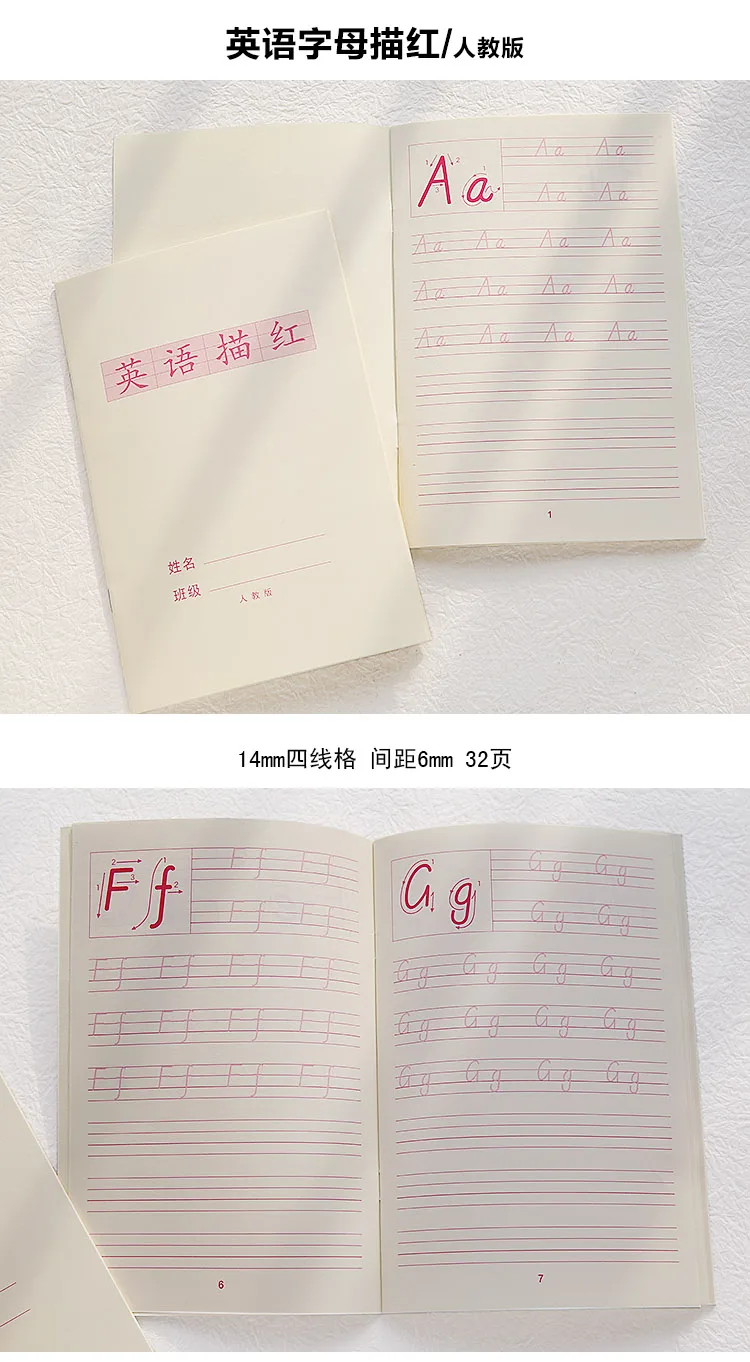 英语字母描红/人教版
英语描红
姓名
班级
人教版
1 2 3 1
A a
Aa Aa
Aa Aa
Aa Aa Aa Aa
Aa Aa Aa Aa
Aa Aa Aa Aa
1
14mm四线格 间距6mm 32页
1 2 3 1 2
F f
Ff Ff
Ff Ff
Ff Ff Ff Ff
Ff Ff Ff Ff
Ff Ff Ff Ff
6
1 1
G g
Gg Gg
Gg Gg
Gg Gg Gg Gg
Gg Gg Gg Gg
Gg Gg Gg Gg
7